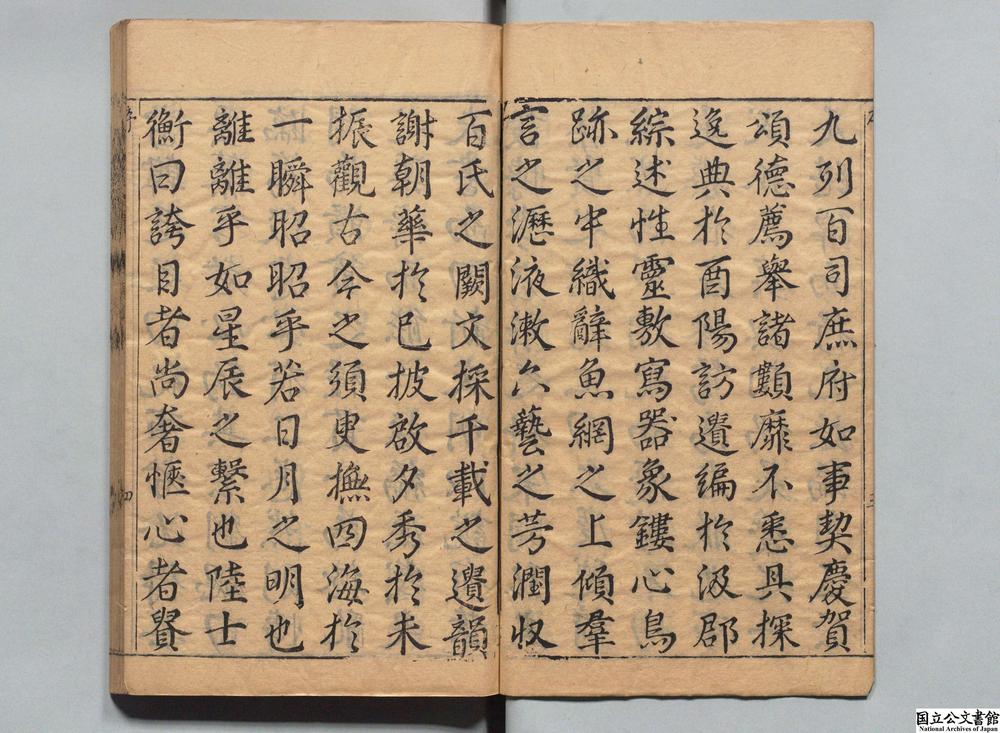 九列百司庶府如事契慶賀
頌德薦舉諸顭靡不悉具探
逸典於酉陽訪遺編於汲郡
綜述性靈敷寫器象鏤心鳥
跡之中織辭魚網之上傾羣
言之瀝液漱六藝之芳潤収
百氏之闕文採千載之遺韻
謝朝華於已披啟夕秀於未
振觀古今之須臾撫四海於
一瞬昭昭乎若日月之明也
離離乎如星辰之繫也陸士
衡曰誇目者尚奢愜心者貴
国立公文書館
National Archives of Japan